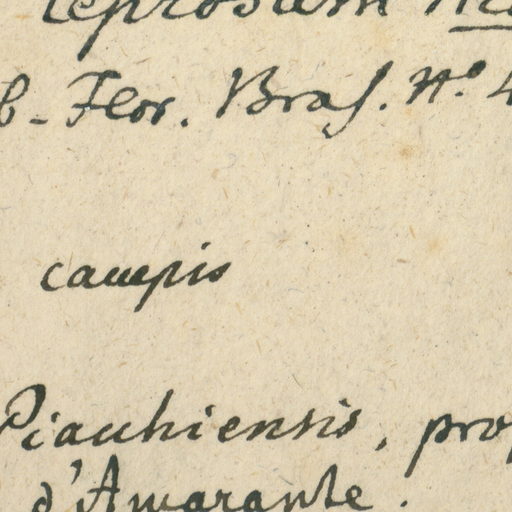 leprosum
b. Flor. Bras. No. 4
campis
Piauhiensis, prop
d'Amarante.